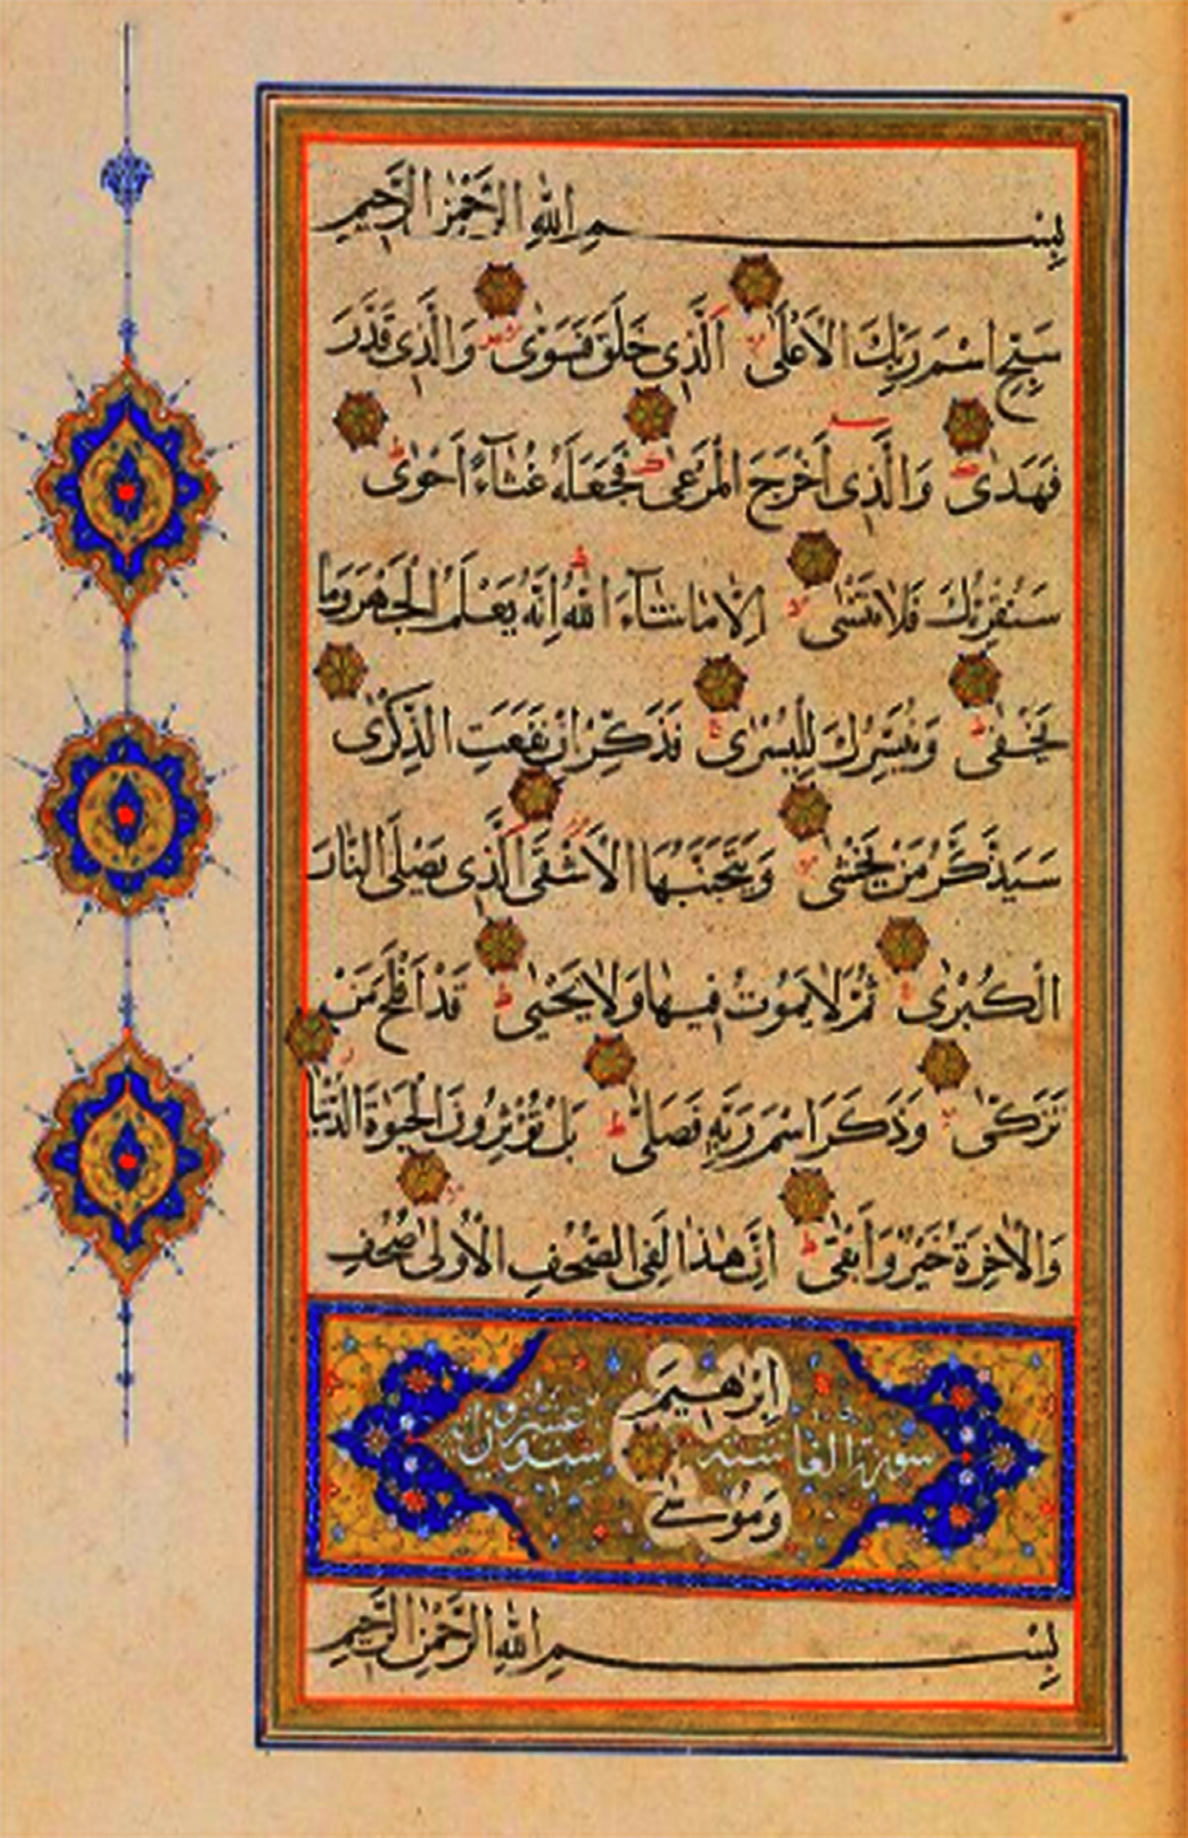 بِسْمِ اللهِ الرَّحْمٰنِ الرَّحِيمِ
سَبِّحِ اسْمَ رَبِّكَ الْاَعْلَىٰ اَلَّذِى خَلَقَ فَسَوّٰى وَالَّذِى قَدَّرَ
فَهَدٰى وَالَّذِى اَخْرَجَ الْمَرْعٰى فَجَعَلَهُ غُثَآءً اَحْوٰى
سَنُقْرِئُكَ فَلَا تَنْسٰى اِلَّا مَا شَآءَ اللهُ اِنَّهُ يَعْلَمُ الْجَهْرَ وَمَا
يَخْفٰى وَنُيَسِّرُكَ لِلْيُسْرٰى فَذَكِّرْ اِنْ نَفَعَتِ الذِّكْرٰى
سَيَذَّكَّرُ مَنْ يَخْشٰى وَيَتَجَنَّبُهَا الْاَشْقَى الَّذِى يَصْلَى النَّارَ
الْكُبْرٰى ثُمَّ لَا يَمُوتُ فِيهَا وَلَا يَحْيٰى قَدْ اَفْلَحَ مَنْ
تَزَكّٰى وَذَكَرَ اسْمَ رَبِّهِ فَصَلّٰى بَلْ تُؤْثِرُونَ الْحَيٰوةَ الدُّنْيَا
وَالْاٰخِرَةُ خَيْرٌ وَاَبْقٰى اِنَّ هٰذَا لَفِى الصُّحُفِ الْاُولٰى صُحُفِ
اِبْرٰهِيمَ
سورة الغاشية ست وعشرون اية
وَمُوسٰى
بِسْمِ اللهِ الرَّحْمٰنِ الرَّحِيمِ